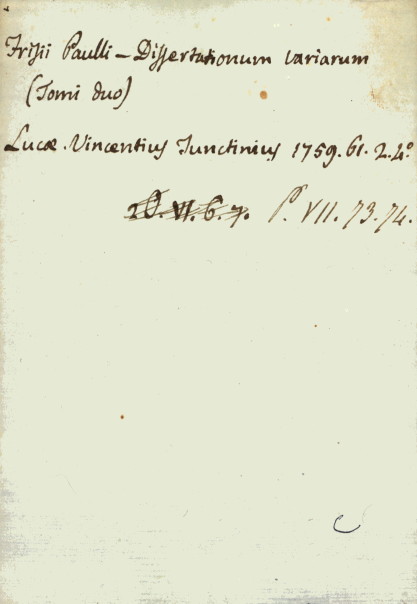 Frisii Paulli – Dissertationum variarum
(Tomi duo)
Lucæ. Vincentius Junctinius 1759. 61. 2. 4.º
P. VII. 73. 74.